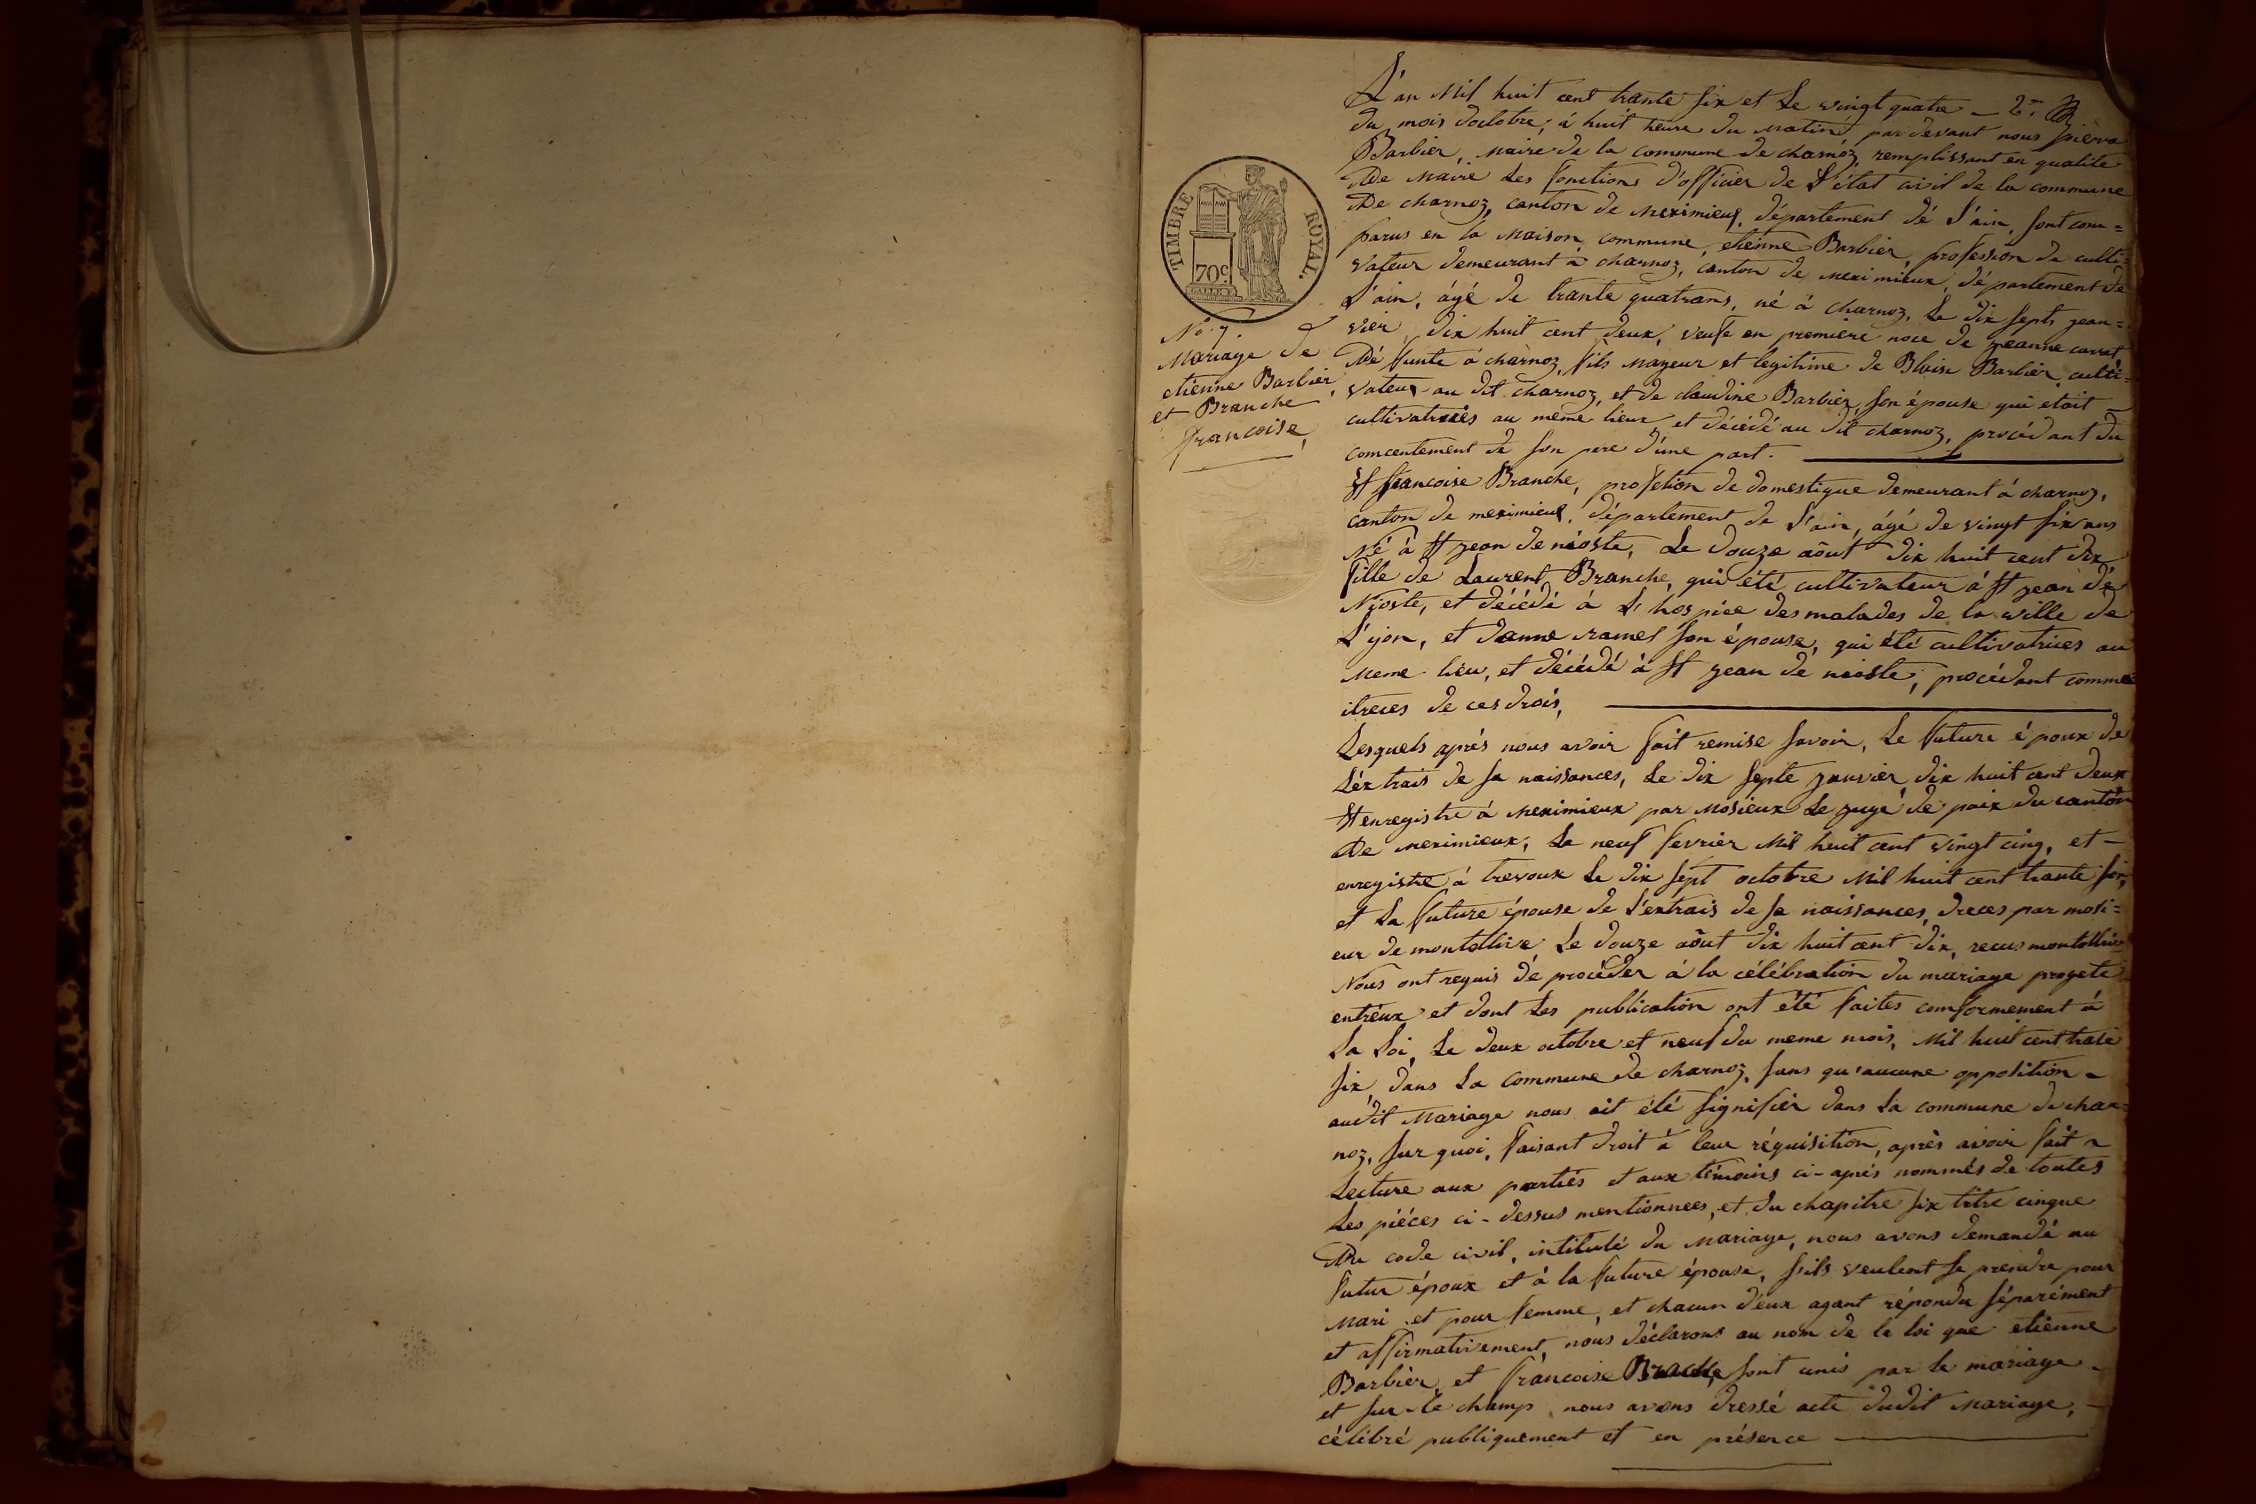 TIMBRE ROYAL.
70c
GALLE F.
No. 7.
Mariage de
etienne Barbier,
et Branche
françoise,
L'an Mil huit cent trante six et Le vingt quatre
du mois doctobre, à huit heure du matin par devant nous pièrre
Barbier, Maire de la commune de charnoz, remplissant en qualité
De Maire Les fonctions d'officier de L'état civil de la commune
De charnoz, canton de meximieux, département dé L'ain, sont com=
parus en la Maison commune, etienne Barbier, profession de culti=
vateur demeurant à charnoz, canton de meximieux, département de
L'ain, âgé de trante quatrans, né à charnoz, Le dix septs jean=
vier, dix huit cent deux, veufe en premiere noce de jeanne carret,
Dé funte à charnoz, fils mayeur et legitime de Blaise Barbier, culti=
vateur au dit charnoz, et de claudine Barbier, son épouse qui etoit
cultivatrices au même lieux, et décédé au dit charnoz, procédant du
comcentement de son pere d'une part.
Et francoise Branche, profetion de domestique demeurant à charnoz,
canton de meximieux, département de L'ain, âgé de vingt six ans
Né à St jean de nioste, Le douze aôut dix huit cent dix
fille de Laurent Branche, qui été cultivateur à St jean dé
Nioste, et décédé à L'hospice des malades de la ville de
L'yon, et danne ramel son épouse, qui été cultivatrices au
meme lieu, et décédé à St jean de nioste, procédant comme
itreces de ces drois,
Lesquels aprés nous avoir fait remise savoir, Le future époux de
L'éxtrais de sa naissances, Le dix septe janvier, dix huit cent deux
Et enregistre à meximieux par Mosieux Le juge de paix du canton
De meximieux, La neuf fevrier Mil huit cent vingt cinq, et -
enregistre à trevoux Le dix sept octobre Mil huit cent trante six,
et La future épouse de L'extrais de sa naissances, dreces par mosi=
eur de montolive Le douze aôut dix huit cent dix, recus montollive
Nous ont requis dé procéder à la célébration du mariage progeté
entréux et dont Les publication ont été faites comformement à
La Loi, Le deux octobre et neuf du meme mois, Mil huit cent trate
six, dans La commune de charnoz, sans qu'aucune opposition -
audit Mariage nous ait été signifiér dans La commune de char=
noz, sur quoi, faisant droit à leur réquisition, après avoir fait -
Lecture aux partiés et aux témoins ci-aprés nommés de toutes
Les piéces ci-dessus mentionnees, et du chapitre six titre cinque
Du code civil, intitulé du mariage, nous avons demandé au
futur époux et à la future épouse, s'ils veulent se prendre pour
mari et pour femme, et chacun d'eux ayant répondu séparément
et affirmativement, nous déclarons au nom de la loi que etiénne
Barbièr, et francoise Branche, sont unis par le mariage -
et sur-le champ nous avons dressé acte dudit mariage, -
célébré publiquement et en présence